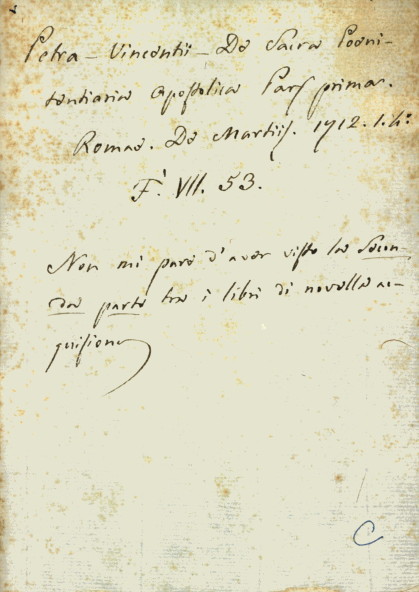 Petra – Vincentii – De Sacra Poeni-
tentiaria Apostolica Pars prima.
Romae. De Martiis. 1712. 1. 4:
F. VII. 53.
Non mi pare d'aver visto la Secon-
da parte tra i libri di novella ac-
quisione
C